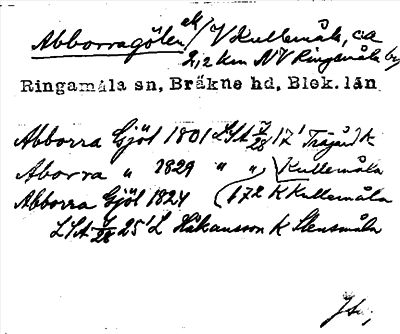 Abborragölen, ak/V Kullemåla, ca
2,2 km NV Ringamåla by
Ringamåla sn, Bräkne hd, Blek. län
Abborra Gjöl 1801 LSA 28 17' Träjård K
Aborra " 1829 " " Kullemåla
Abborra Gjöl 1824 172 K Kullemåla
LSA 28 25' L Håkansson K Stensmåla